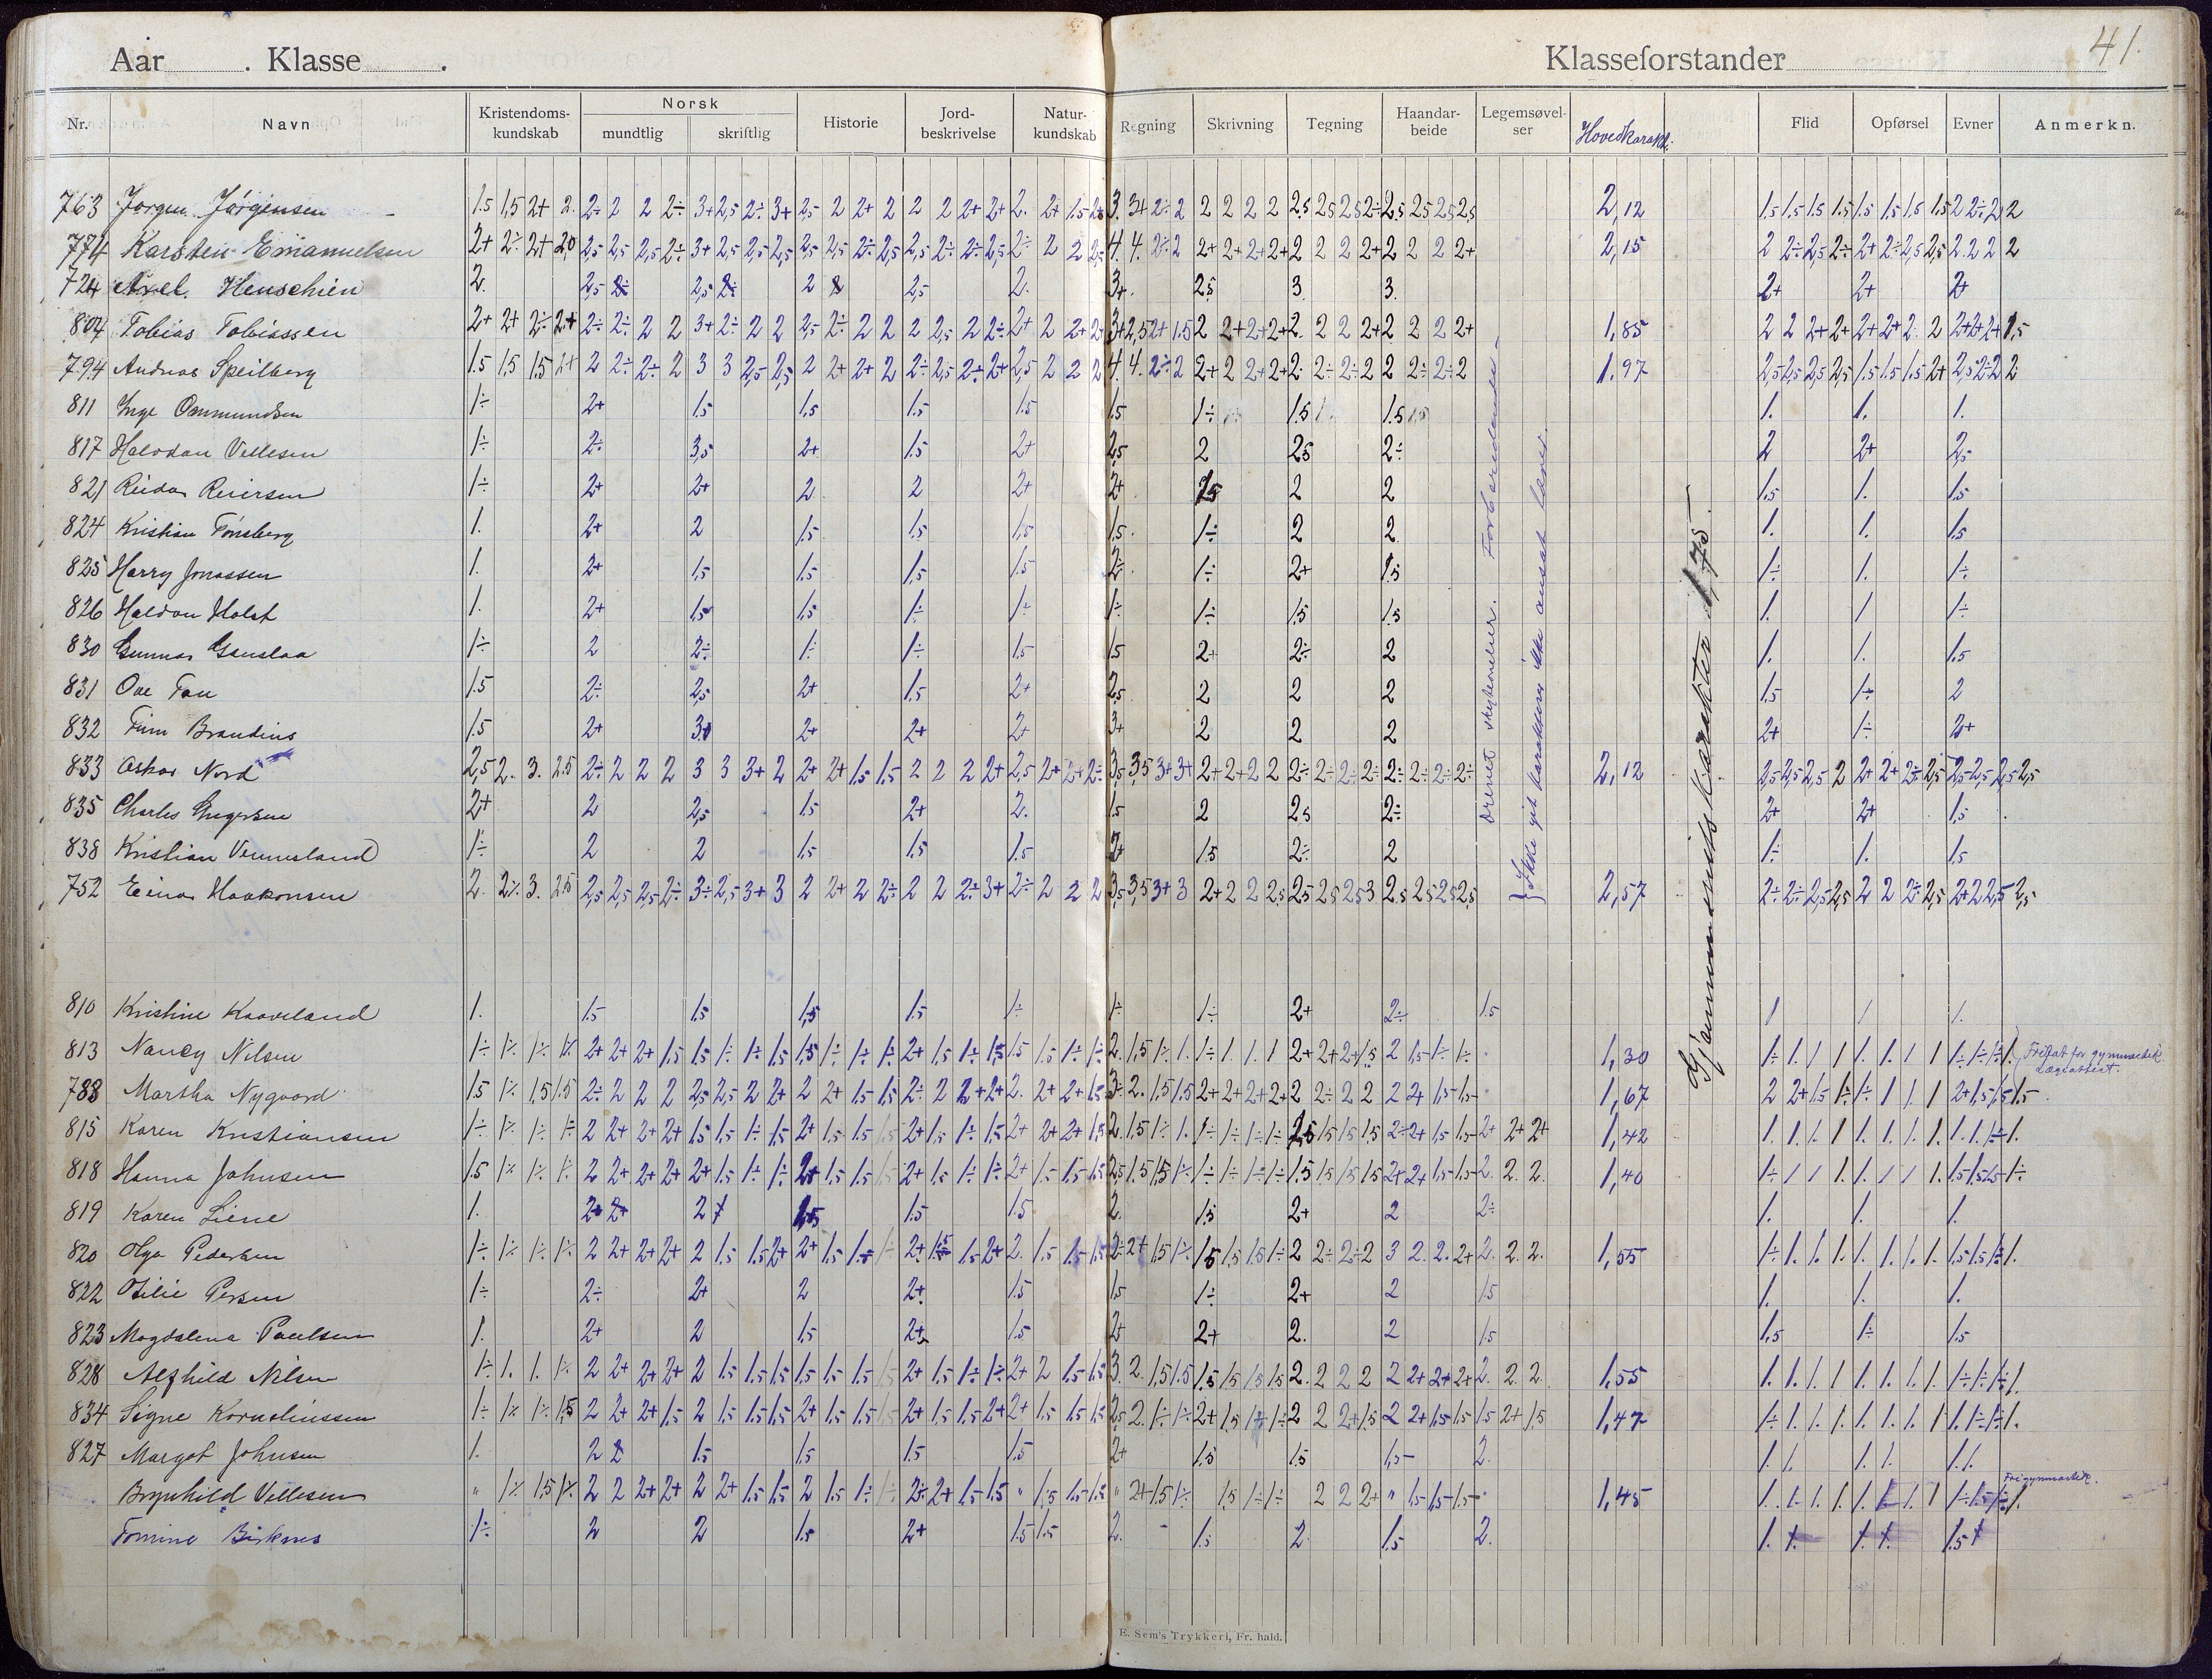 41.
Aar . Klasse .
Klasseforstander
Nr. Navn Kristendoms-kundskab Norsk mundtlig skriftlig Historie Jord-beskrivelse Natur-kundskab Regning Skrivning Tegning Haandar-beide Legemsøvel-ser Hovedkarakt. Flid Opførsel Evner Anmerkn.
763 Jørgen Jørgensen 1.5 1,5 2+ 2. 2÷ 2 2 2÷ 3+ 2,5 2÷ 3+ 2,5 2 2+ 2 2 2 2+ 2+ 2. 2+ 1.5 2+ 3. 3+ 2÷ 2 2 2 2 2 2,5 2,5 2,5 2÷ 2,5 2,5 2,5 2,5 2,12 1,5 1,5 1,5 1,5 1,5 1,5 1,5 1,5 2 2÷ 2 2
774 Karsten Emanuelsen 2+ 2÷ 2+ 2,0 2,5 2,5 2,5 2÷ 3+ 2,5 2,5 2,5 2,5 2,5 2÷ 2,5 2,5 2÷ 2÷ 2,5 2÷ 2 2 2÷ 4. 4. 2÷ 2 2+ 2+ 2+ 2+ 2 2 2 2+ 2 2 2 2+ 2,15 2 2÷ 2,5 2÷ 2+ 2÷ 2,5 2,5 2. 2 2 2
724 Axel Henschien 2. 2,5 2,5 2 2,5 2. 3+. 2,5 3 3. 2+ 2+ 2+
804 Tobias Tobiassen 2+ 2+ 2÷ 2+ 2÷ 2÷ 2 2 3+ 2÷ 2 2 2,5 2÷ 2 2 2 2,5 2 2÷ 2+ 2 2+ 2+ 3+ 2,5 2+ 1.5 2 2+ 2+ 2+ 2. 2 2 2+ 2 2 2 2+ 1,85 2 2 2+ 2+ 2+ 2+ 2. 2 2+ 2+ 2+ 1,5
794 Andreas Speilberg 1.5 1,5 1,5 2+ 2 2÷ 2÷ 2 3 3 2,5 2,5 2 2+ 2+ 2 2÷ 2,5 2÷ 2+ 2,5 2 2 2 4. 4. 2÷ 2 2+ 2 2+ 2+ 2. 2÷ 2÷ 2 2 2÷ 2÷ 2 1.97 2,5 2,5 2,5 2,5 1.5 1.5 1.5 2+ 2,5 2÷ 2 2
811 Inge Ommundsen 1÷ 2+ 1.5 1,5 1.5 1.5 1.5 1÷ 1.5 1.5 1. 1. 1.
817 Halvdan Vellesen 1÷ 2÷ 3,5 2+ 1.5 2+ 2,5 2 2,5 2÷ 2 2+ 2,5
821 Reidar Reiersen 1÷ 2+ 2+ 2 2 2+ 2+ 2 2 1,5 1. 1.5
824 Kristian Tønsberg 1. 2+ 2 1.5 1.5 1,5 1.5. 1÷ 2 2 1. 1. 1.5
825 Harry Jonassen 1. 2+ 1,5 1.5 1,5 1.5 2÷. 1÷ 2+ 1.5 1÷ 1. 1÷
826 Haldan Holst 1. 2+ 1,5 1,5 1÷ 1÷ 1÷ 1÷ 1.5 1.5 1. 1 1÷
830 Gunnar Gauslaa 1÷ 2 2÷ 1÷ 1÷ 1.5 1.5 2+ 2÷ 2 1. 1. 1.5
831 Ove Fan 1.5 2÷ 2,5 2+ 1.5 2+ 2,5 2 2 2 1,5 1÷ 2
832 Finn Brandius 1.5 2+ 3+ 2+ 2+ 2+ 3+ 2 2 2 2+ 1÷ 2+
833 Oskar Nord 2,5 2. 3. 2.5 2÷ 2 2 2 3 3 3+ 2 2+ 2+ 1.5 1.5 2 2 2 2+ 2,5 2+ 2+ 2÷ 3,5 3,5 3+ 3+ 2+ 2+ 2 2 2÷ 2÷ 2÷ 2÷ 2÷ 2÷ 2÷ 2÷ 2,12 2,5 2,5 2,5 2 2+ 2+ 2÷ 2,5 2,5 2,5 2,5 2,5
835 Charles Gregersen 2+ 2 2,5 1.5 2+ 2. 1.5 2 2,5 2÷ 2+ 2+ 1,5
838 Kristian Vennesland 1÷ 2 2 1.5 1.5 1.5 2+ 1.5 2÷ 2 1÷ 1. 1.5
752 Einar Haakonsen 2. 2÷ 3. 2,5 2,5 2,5 2,5 2÷ 3÷ 2,5 3+ 3 2 2+ 2 2÷ 2 2 2÷ 3+ 2÷ 2 2 2 3,5 3,5 3+ 3 2+ 2 2 2,5 2,5 2,5 2,5 3 2,5 2,5 2,5 2,5 2,57 2÷ 2÷ 2,5 2,5 2 2 2÷ 2,5 2+ 2 2,5 2,5
Ikke git karakteren ikke ansat lærer.
Gjennemsnitskarakter 1,75
810 Kristine Kaaveland 1. 1.5 1.5 1,5 1.5 1÷ 1÷ 1÷ 2+ 2÷ 1.5 1 1 1.
813 Nancy Nilsen 1÷ 1÷ 1÷ 1÷ 2+ 2+ 2+ 1.5 1.5 1÷ 1÷ 1.5 1,5 1÷ 1÷ 1÷ 2+ 1.5 1÷ 1.5 1.5 1.5 1÷ 1÷ 2. 1,5 1÷ 1. 1÷ 1. 1. 1 2+ 2+ 2+ 1.5 2 1.5 1÷ 1÷ 1,30 1÷ 1. 1 1 1. 1. 1 1 1÷ 1÷ 1÷ 1. Fritat for gymnastik. Lægeattest.
788 Martha Nygaard 1.5 1÷ 1,5 1.5 2÷ 2 2 2 2,5 2,5 2 2+ 2 2+ 1.5 1.5 2÷ 2 2+ 2+ 2. 2+ 2+ 1.5 3÷ 2. 1.5 1.5 2+ 2+ 2+ 2+ 2 2÷ 2 2 2 2+ 1.5 1.5 1,67 2 2+ 1.5 1÷ 1÷ 1 1 1 2+ 1.5 1.5 1.5
815 Karen Kristiansen 1÷ 1÷ 1÷ 1÷ 2 2+ 2+ 2+ 1.5 1.5 1÷ 1.5 2+ 1.5 1.5 1.5 2+ 1.5 1÷ 1.5 2+ 2+ 2+ 1.5 2. 1.5 1÷ 1. 1÷ 1÷ 1÷ 1÷ 1,5 1.5 1.5 1.5 2÷ 2+ 1.5 1.5 2+ 2+ 2+ 1,42 1. 1. 1. 1 1. 1. 1. 1. 1. 1. 1÷ 1.
818 Hanna Johnsen 1.5 1÷ 1÷ 1÷ 2 2+ 2+ 2+ 2+ 1.5 1÷ 1÷ 2+ 1.5 1.5 1.5 2+ 1.5 1÷ 1÷ 2+ 1.5 1.5 1.5 2,5 1.5 1.5 1÷ 1÷ 1÷ 1÷ 1÷ 1.5 1.5 1.5 1.5 2+ 2+ 1.5 1.5 2. 2. 2. 1,40 1÷ 1 1 1. 1. 1 1 1. 1.5 1.5 1.5 1÷
819 Karen Liene 1. 2 1.5 1.5 2. 1.5 2+ 2 2÷ 1. 1. 1.
820 Olga Pedersen 1÷ 1÷ 1÷ 1÷ 2 2+ 2+ 2+ 2 1.5 1.5 2+ 2+ 1.5 1.5 1÷ 2+ 1.5 1.5 2+ 2. 1.5 1.5 1.5 2÷ 2+ 1.5 1÷ 1.5 1,5 1.5 1÷ 2 2÷ 2÷ 2 3 2. 2. 2+ 2. 2. 2. 1,55 1÷ 1. 1. 1. 1. 1. 1. 1. 1.5 1.5 1÷ 1.
822 Otilie Persen 1÷ 2÷ 2+ 2 2+ 1.5 1.5 1÷ 2+ 2 1.5 1. 1. 1.
823 Magdalena Paulsen 1. 2+ 2 1.5 2+ 1.5 2+ 2+ 2. 2 1.5 1,5 1÷ 1.5
828 Alfhild Nilsen 1÷ 1. 1. 1÷ 2 2+ 2+ 2+ 2 1.5 1.5 1.5 1.5 1.5 1.5 1.5 2+ 1.5 1÷ 1÷ 2+ 2 1.5 1.5 3. 2. 1.5 1.5 1.5 1.5 1.5 1.5 2. 2 2 2 2 2+ 2+ 2+ 2. 2. 2. 1,55 1. 1. 1. 1 1. 1. 1. 1. 1÷ 1÷ 1÷ 1.
834 Signe Korneliussen 1÷ 1÷ 1÷ 1.5 2 2+ 2+ 1.5 2 1.5 1.5 1.5 2+ 1.5 1.5 1.5 2+ 1.5 1.5 2+ 2+ 1.5 1.5 1.5 2,5 2. 1÷ 1÷ 2+ 1.5 1÷ 1÷ 2 2 2+ 1.5 2 2+ 1.5 1.5 1.5 2+ 1.5 1,47 1÷ 1. 1. 1. 1. 1. 1. 1 1. 1÷ 1÷ 1.
827 Margot Johnsen 1. 2 1.5 1.5 1.5 1.5 2+ 1.5 1.5 1,5 2. 1. 1. 1. 1. 1. 1.
Brynhild Vellesen " 1÷ 1,5 1÷ 2 2 2+ 2+ 2 2+ 1.5 1.5 2 1.5 1÷ 1÷ 2÷ 2+ 1.5 1.5 " 1.5 1.5 1.5 " 2+ 1.5 1÷ 1.5 1÷ 1÷ 2 2 2+ " 1.5 1.5 1.5 " 1,45 1. 1. 1. 1. 1. 1 1. 1 1÷ 1.5 1÷ 1. Fri gymnastik.
Tomine Birknes 1÷ 2 2 1.5 2+ 1.5 1.5 2. - 1.5 2. 1.5 2. 1. 1. 1.5
E. Sem's Trykkeri, Fr. hald.